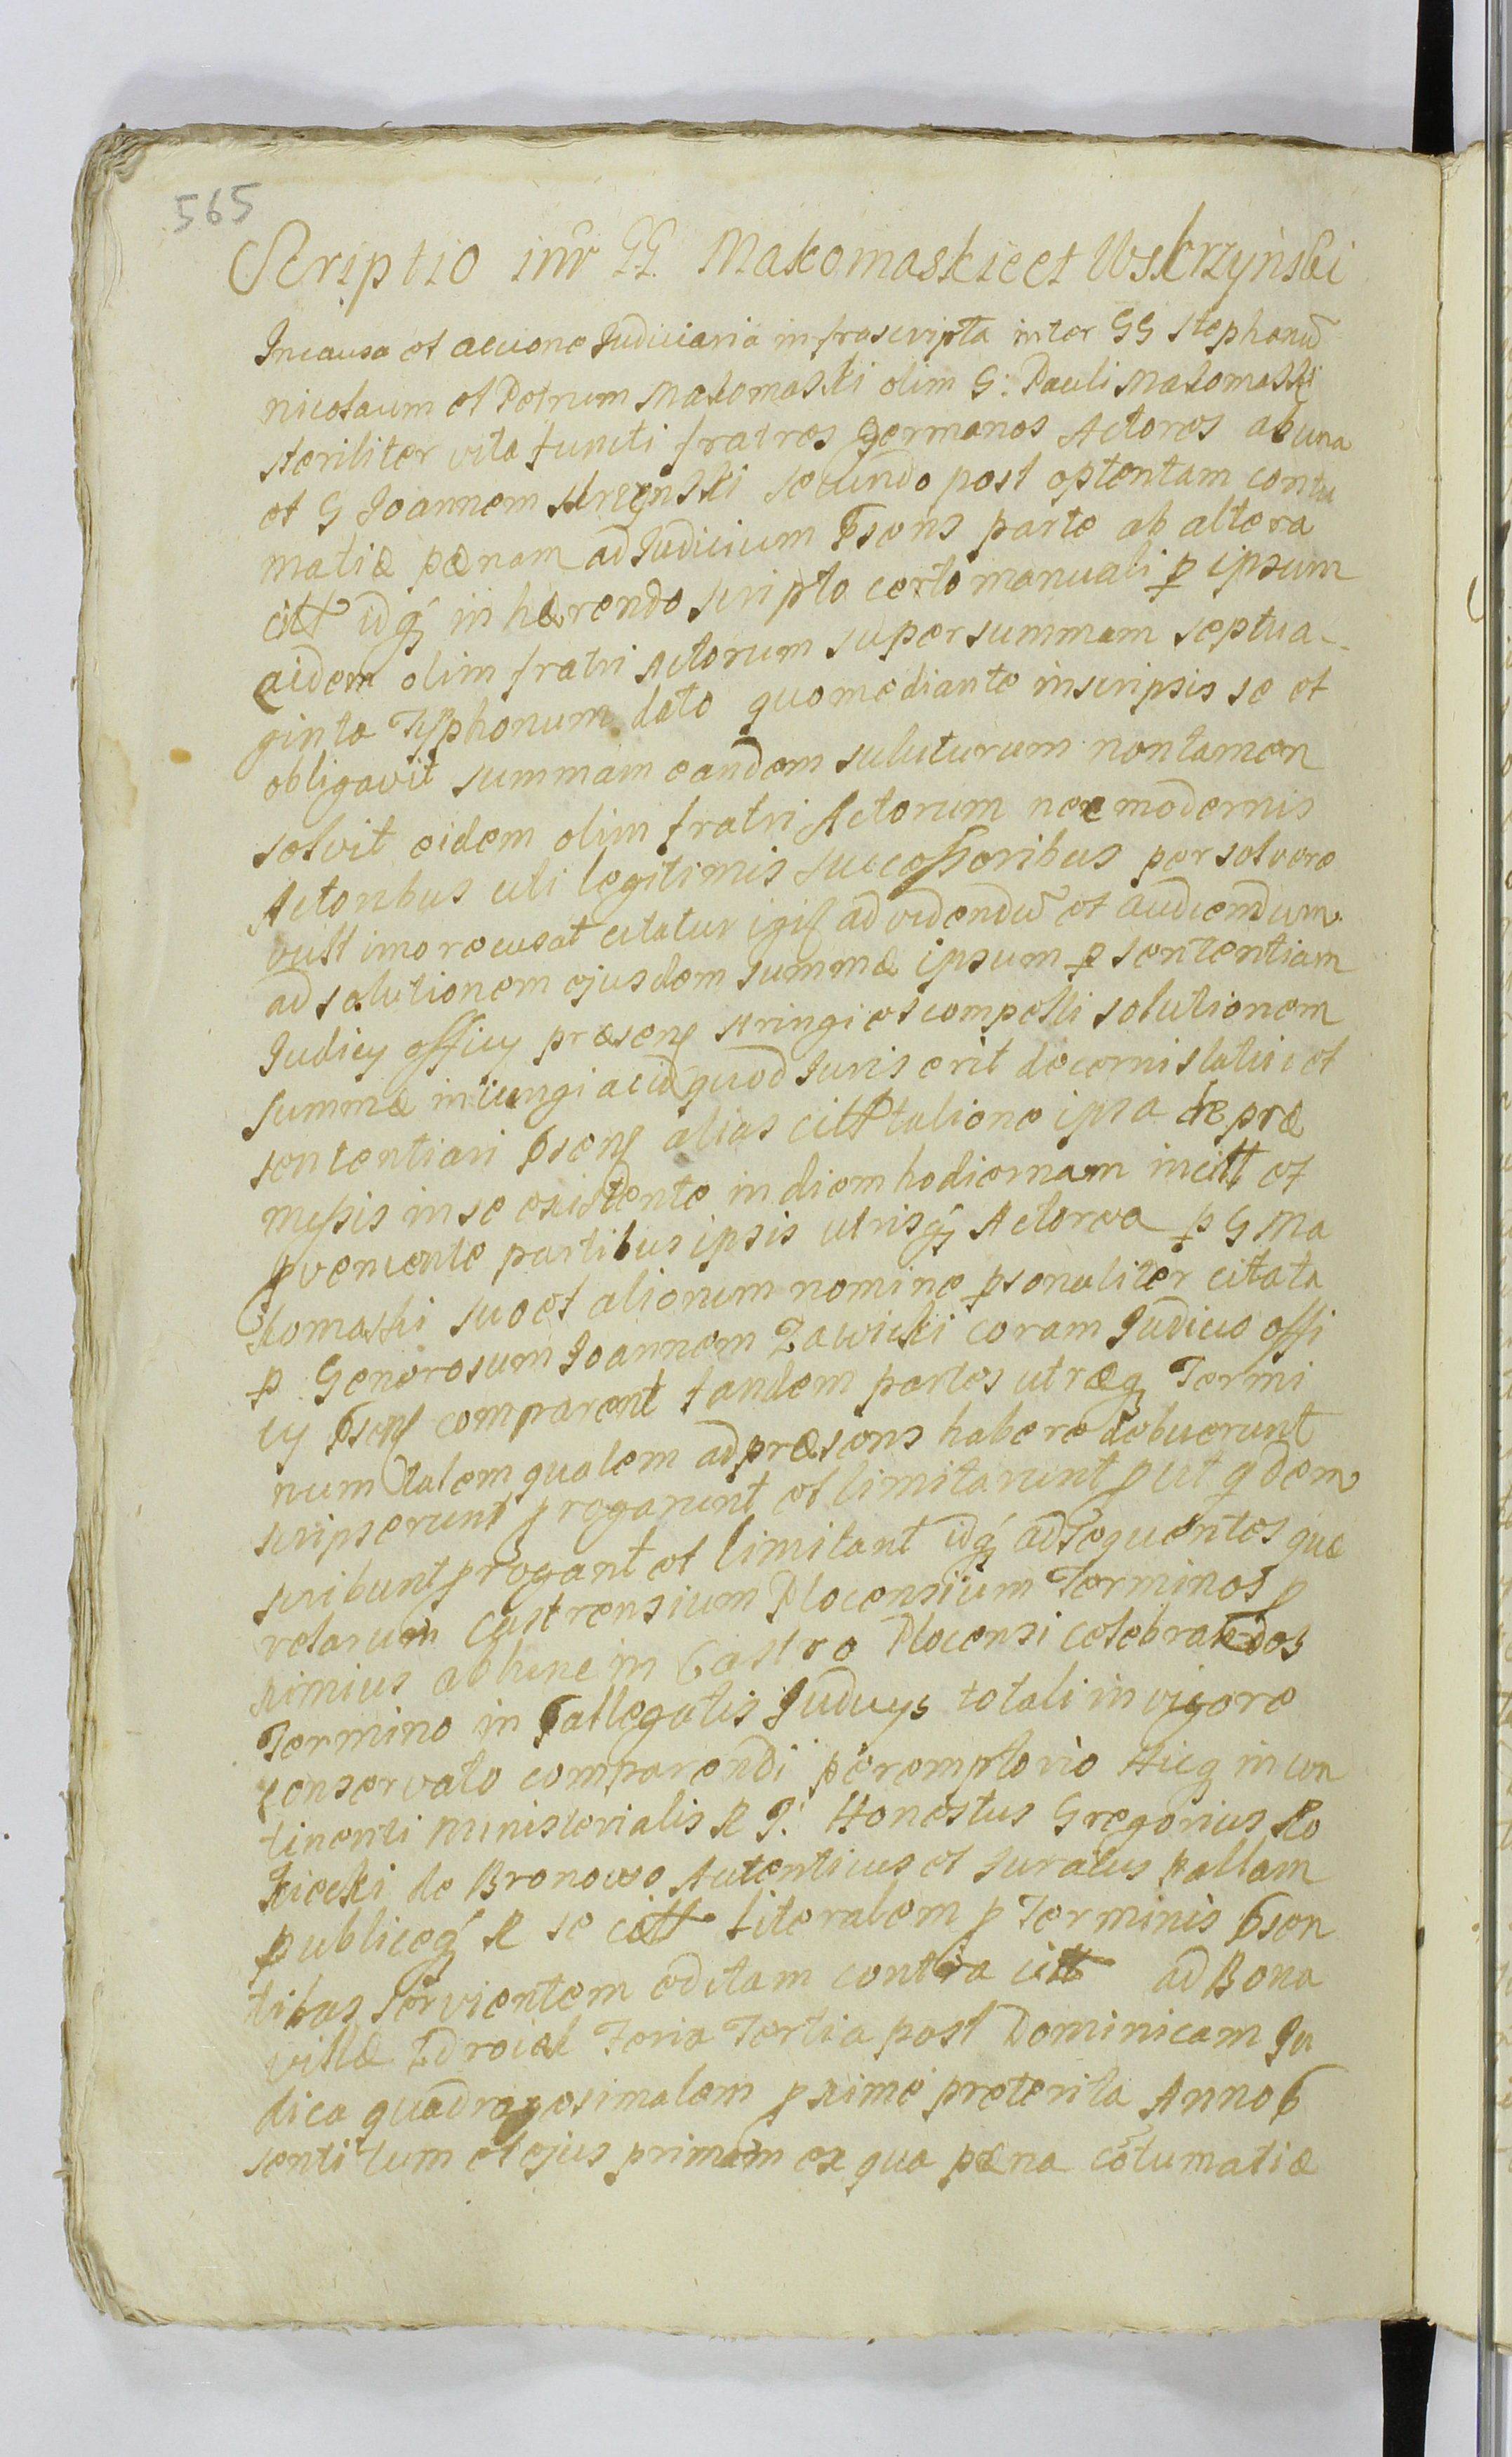 565
Scriptio inr GG. Makomaskie et Uskrzyński
In causa et accione Judiciaria infrascripta inter GG Stephanū
Nicolaum et Petrum Makomaski olim G: Pauli Makomaski
steriliter vita functi fratres germanos Actores ab una
et G Joannem Skrzynski secundo post optentam contu
matiæ pænam ad Judicium psens parte ab altera
citt idq́ in hærendo scripto certo manuali p ipsum
eidem olim fratri Actorum super summam septua-
ginta Typhonum dato quo mediante inscripsis se et
obligavit summam eandem suluturum non tamen
solvit eidem olim fratri Actorum nec modernis
Actoribus uti legitimis successoribus persolvere
vult imo recusat citatur igit ad videndū et audiendum
ad solutionem ejusdem summæ ipsum p sententiam
Judicy officy præsens stringi et compelli solutionem
summæ iniungi acid quod Juris erit decerni statui et
sententiari psens alias citt tatione ipsa de præ
missis in se existente in diem hodiernam incitt et
pveniente partibus ipsis utrisq́ Actorea p G Ma
komaski suo et aliorum nomine psonaliter citata
p Generosum Joannem Zawicki coram Judicio offi
cy psens comparent tandem partes utræq Termi
num talem qualem ad præsens habere debuerunt
scripserunt progarunt et limitarunt put qdem
scribunt progant et limitant idq́ ad sequentes quæ
relarum castrensium Plocensium Terminos p
ximius ad hunc in Castro Plocensi celebrandos
Termino in pallegatis Judicys totali in vigore
conservato comparendi peremptorio Hicq in con
tinenti Ministerialis R G. Honestus Gregorius Ro
kicki de Bronowo Autenticus et Juratus pallam
publiceq́ R se citt literalem p Terminis psen
tibus servientem editam contra citt ad Bona
villæ Zdroiek Feria Tertia post Dominicam Ju
dica quadragesimalem pxime preterita Anno p
senti tum et ejus primam ex qua pæna cōtumatiæ